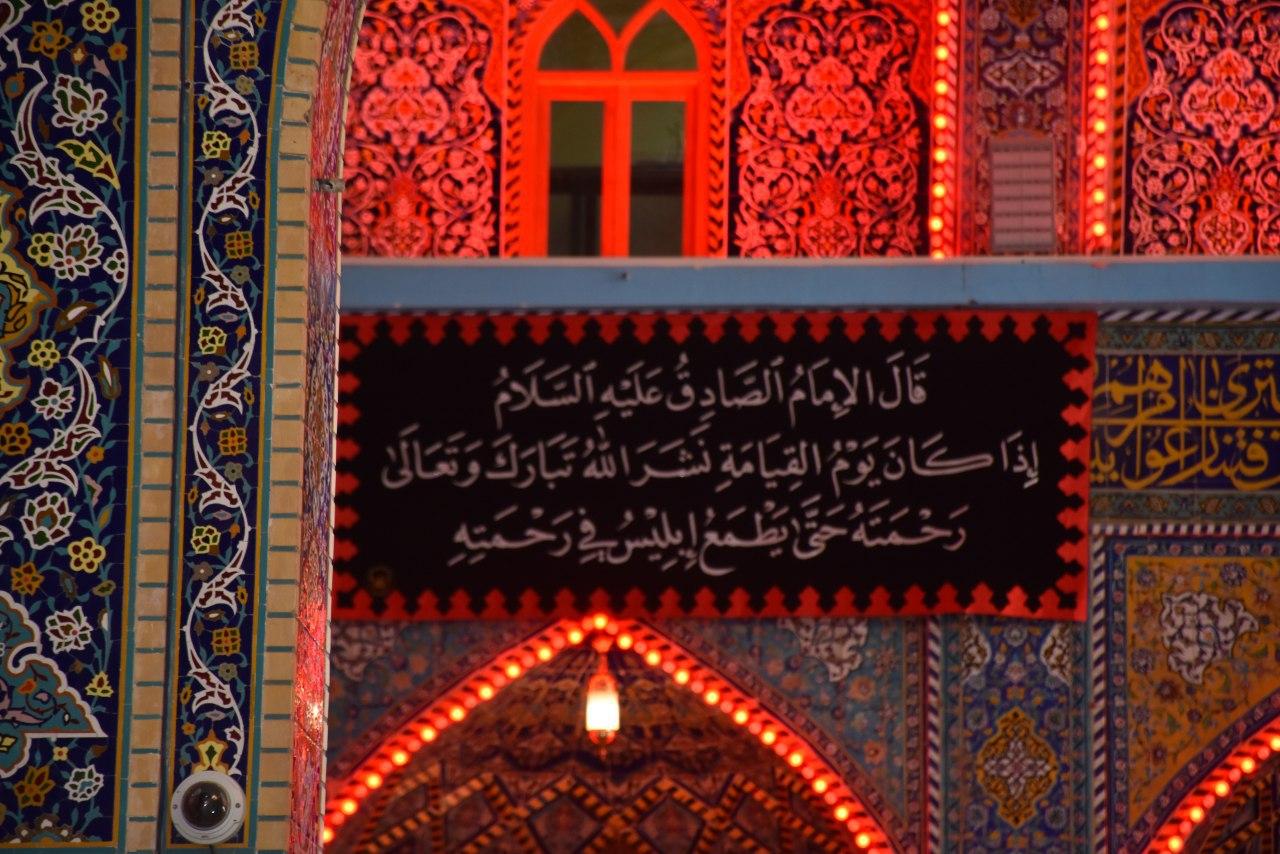 قَالَ الإِمَامُ ٱلصَّادِقُ عَلَيْهِ ٱلسَّلَامُ
إِذَا كَانَ يَوْمُ القِيَامَةِ نَشَرَ اللهُ تَبَارَكَ وَتَعَالَىٰ
رَحْمَتَهُ حَتَّىٰ يَطْمَعُ إِبلِيْسُ فِي رَحْمَتِهِ